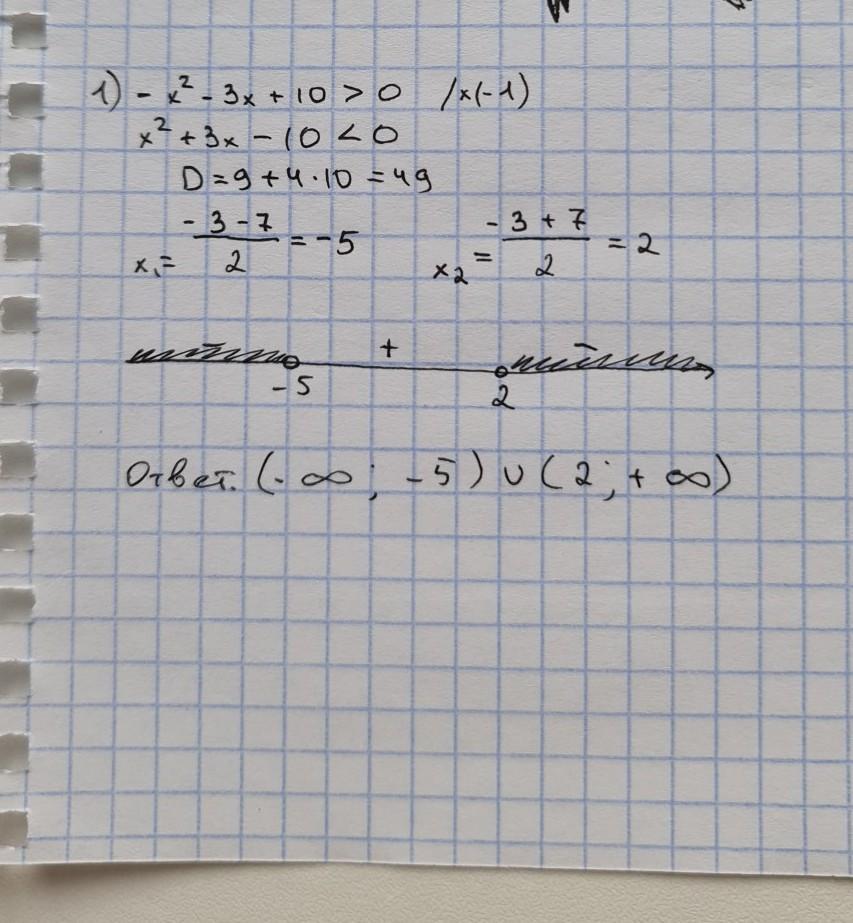 1) - x² - 3x + 10 > 0 /x(-1)
x² + 3x - 10 < 0
D = 9 + 4·10 = 49
x₁ = (-3-7)/2 = -5 x₂ = (-3+7)/2 = 2
- + -
-5 2
Ответ. (-∞; -5) ∪ (2; +∞)